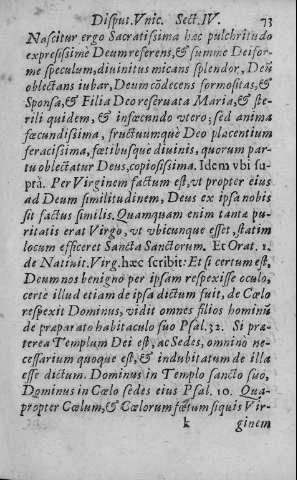 Disput. Vnic. Sect. IV. 73
Nascitur ergo Sacratissima hæc pulchritudo
expressissimè Deum referens, & summè Deifor-
me speculum, divinitus micans splendor, Deũ
oblectans iubar, Deum cõdecens formositas, &
Sponsa, & Filia Deo reservata Maria, & ste-
rili quidem, & infœcundo vtero; sed anima
fœcundissima, fructuumquè Deo placentium
feracissima, fœtibusquè divinis, quorum par-
tu oblectatur Deus, copiosissima. Idem vbi su-
prà. Per Virginem factum est, vt propter eius
ad Deum similitudinem, Deus ex ipsa nobis
sit factus similis. Quamquam enim tantæ pu-
ritatis erat Virgo, vt vbicunque esset, statim
locum efficeret Sancta Sanctorum. Et Orat. 1.
de Nativit. Virg. hæc scribit: Et si certum est,
Deum nos benigno per ipsam respexisse oculo,
certè illud etiam de ipsa dictum fuit, de Cœlo
respexit Dominus, vidit omnes filios hominũ
de præparato habitaculo suo Psal. 32. Si præ-
terea Templum Dei est, ac Sedes, omninò ne-
cessarium quoque est, & indubitatum de illa
esse dictum. Dominus in Templo sancto suo,
Dominus in Cœlo sedes eius Psal. 10. Qua-
propter Cœlum, & Cœlorum fœtum siquis Vir-
k ginem